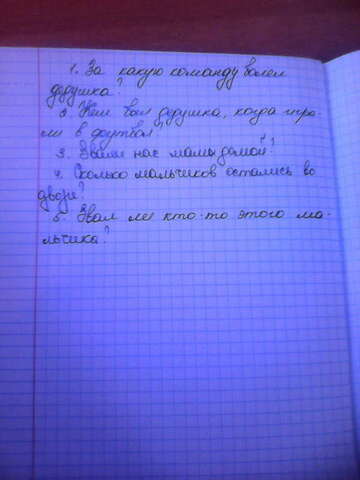 1. За какую команду болел
дедушка?
2. Кем был дедушка, когда игра-
ли в футбол?
3. Звали нас мамы домой?
4. Сколько мальчиков остались во
дворе?
5. Звал ли кто-то этого ма-
льчика?